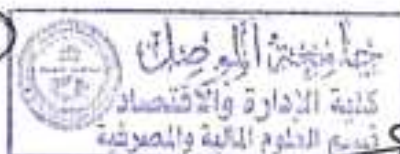 جامعة الموصل
كلية الإدارة والاقتصاد
قسم العلوم المالية والمصرفية